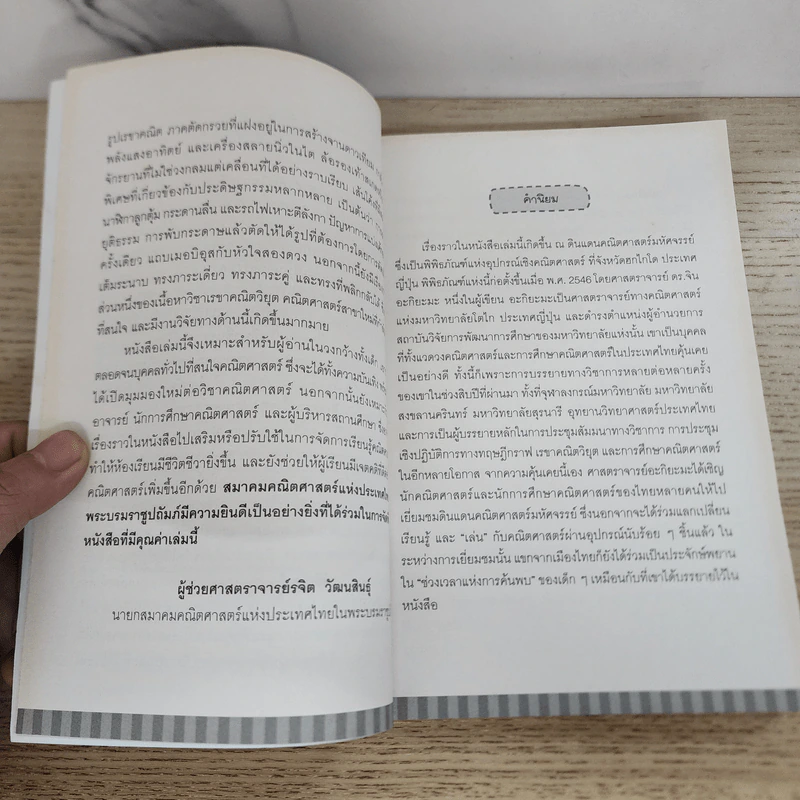 รูปเรขาคณิต ภาคตัดกรวยที่แฝงอยู่ในการสร้างจานดาวเทียม
พลังแสงอาทิตย์ และเครื่องสลายนิ่วในไต ล้อรองเท้าสเกต
จักรยานที่ไม่ใช่วงกลมแต่เคลื่อนที่ได้อย่างราบเรียบ เส้นโค้ง
พิเศษที่เกี่ยวข้องกับประดิษฐกรรมหลากหลาย เป็นต้นว่า
นาฬิกาลูกตุ้ม กระดานลื่น และรถไฟเหาะตีลังกา ปัญหาการแบ่ง
ยุติธรรม การพับกระดาษแล้วตัดให้ได้รูปที่ต้องการโดยการตัด
ครั้งเดียว แถบเมอบิอุสกับหัวใจสองดวง นอกจากนี้ยังมีเรื่อง
เต็มระนาบ ทรงภาระเดี่ยว ทรงภาระคู่ และทรงที่พลิกกลับได้
ส่วนหนึ่งของเนื้อหาวิชาเรขาคณิตวิยุต คณิตศาสตร์สาขาใหม่ที่
ที่สนใจ และมีงานวิจัยทางด้านนี้เกิดขึ้นมากมาย
หนังสือเล่มนี้จึงเหมาะสำหรับผู้อ่านในวงกว้างทั้งเด็ก
ตลอดจนบุคคลทั่วไปที่สนใจคณิตศาสตร์ ซึ่งจะได้ทั้งความบันเทิง
ได้เปิดมุมมองใหม่ต่อวิชาคณิตศาสตร์ นอกจากนั้นยังเหมาะ
อาจารย์ นักการศึกษาคณิตศาสตร์ และผู้บริหารสถานศึกษา
เรื่องราวในหนังสือไปเสริมหรือปรับใช้ในการจัดการเรียนรู้คณิต
ทำให้ห้องเรียนมีชีวิตชีวายิ่งขึ้น และยังช่วยให้ผู้เรียนมีเจตคติที่ดี
คณิตศาสตร์เพิ่มขึ้นอีกด้วย สมาคมคณิตศาสตร์แห่งประเทศไทย
พระบรมราชูปถัมภ์มีความยินดีเป็นอย่างยิ่งที่ได้ร่วมในการจัด
หนังสือที่มีคุณค่าเล่มนี้
ผู้ช่วยศาสตราจารย์รจิต วัฒนสินธุ์
นายกสมาคมคณิตศาสตร์แห่งประเทศไทยในพระบรมราชู
คำนิยม
เรื่องราวในหนังสือเล่มนี้เกิดขึ้น ณ ดินแดนคณิตศาสตร์มหัศจรรย์
ซึ่งเป็นพิพิธภัณฑ์แห่งอุปกรณ์เชิงคณิตศาสตร์ ที่จังหวัดฮกไกโด ประเทศ
ญี่ปุ่น พิพิธภัณฑ์แห่งนี้ก่อตั้งขึ้นเมื่อ พ.ศ. 2546 โดยศาสตราจารย์ ดร.จิน
อะกิยะมะ หนึ่งในผู้เขียน อะกิยะมะเป็นศาสตราจารย์ทางคณิตศาสตร์
แห่งมหาวิทยาลัยโตไก ประเทศญี่ปุ่น และดำรงตำแหน่งผู้อำนวยการ
สถาบันวิจัยการพัฒนาการศึกษาของมหาวิทยาลัยแห่งนั้น เขาเป็นบุคคล
ที่ทั้งแวดวงคณิตศาสตร์และการศึกษาคณิตศาสตร์ในประเทศไทยคุ้นเคย
เป็นอย่างดี ทั้งนี้ก็เพราะการบรรยายทางวิชาการหลายต่อหลายครั้ง
ของเขาในช่วงสิบปีที่ผ่านมา ทั้งที่จุฬาลงกรณ์มหาวิทยาลัย มหาวิทยาลัย
สงขลานครินทร์ มหาวิทยาลัยสุรนารี อุทยานวิทยาศาสตร์ประเทศไทย
และการเป็นผู้บรรยายหลักในการประชุมสัมมนาทางวิชาการ การประชุม
เชิงปฏิบัติการทางทฤษฎีกราฟ เรขาคณิตวิยุต และการศึกษาคณิตศาสตร์
ในอีกหลายโอกาส จากความคุ้นเคยนี้เอง ศาสตราจารย์อะกิยะมะได้เชิญ
นักคณิตศาสตร์และนักการศึกษาคณิตศาสตร์ของไทยหลายคนให้ไป
เยี่ยมชมดินแดนคณิตศาสตร์มหัศจรรย์ ซึ่งนอกจากจะได้ร่วมแลกเปลี่ยน
เรียนรู้ และ “เล่น” กับคณิตศาสตร์ผ่านอุปกรณ์นับร้อย ๆ ชิ้นแล้ว ใน
ระหว่างการเยี่ยมชมนั้น แขกจากเมืองไทยก็ยังได้ร่วมเป็นประจักษ์พยาน
ใน “ช่วงเวลาแห่งการค้นพบ” ของเด็ก ๆ เหมือนกับที่เขาได้บรรยายไว้ใน
หนังสือ